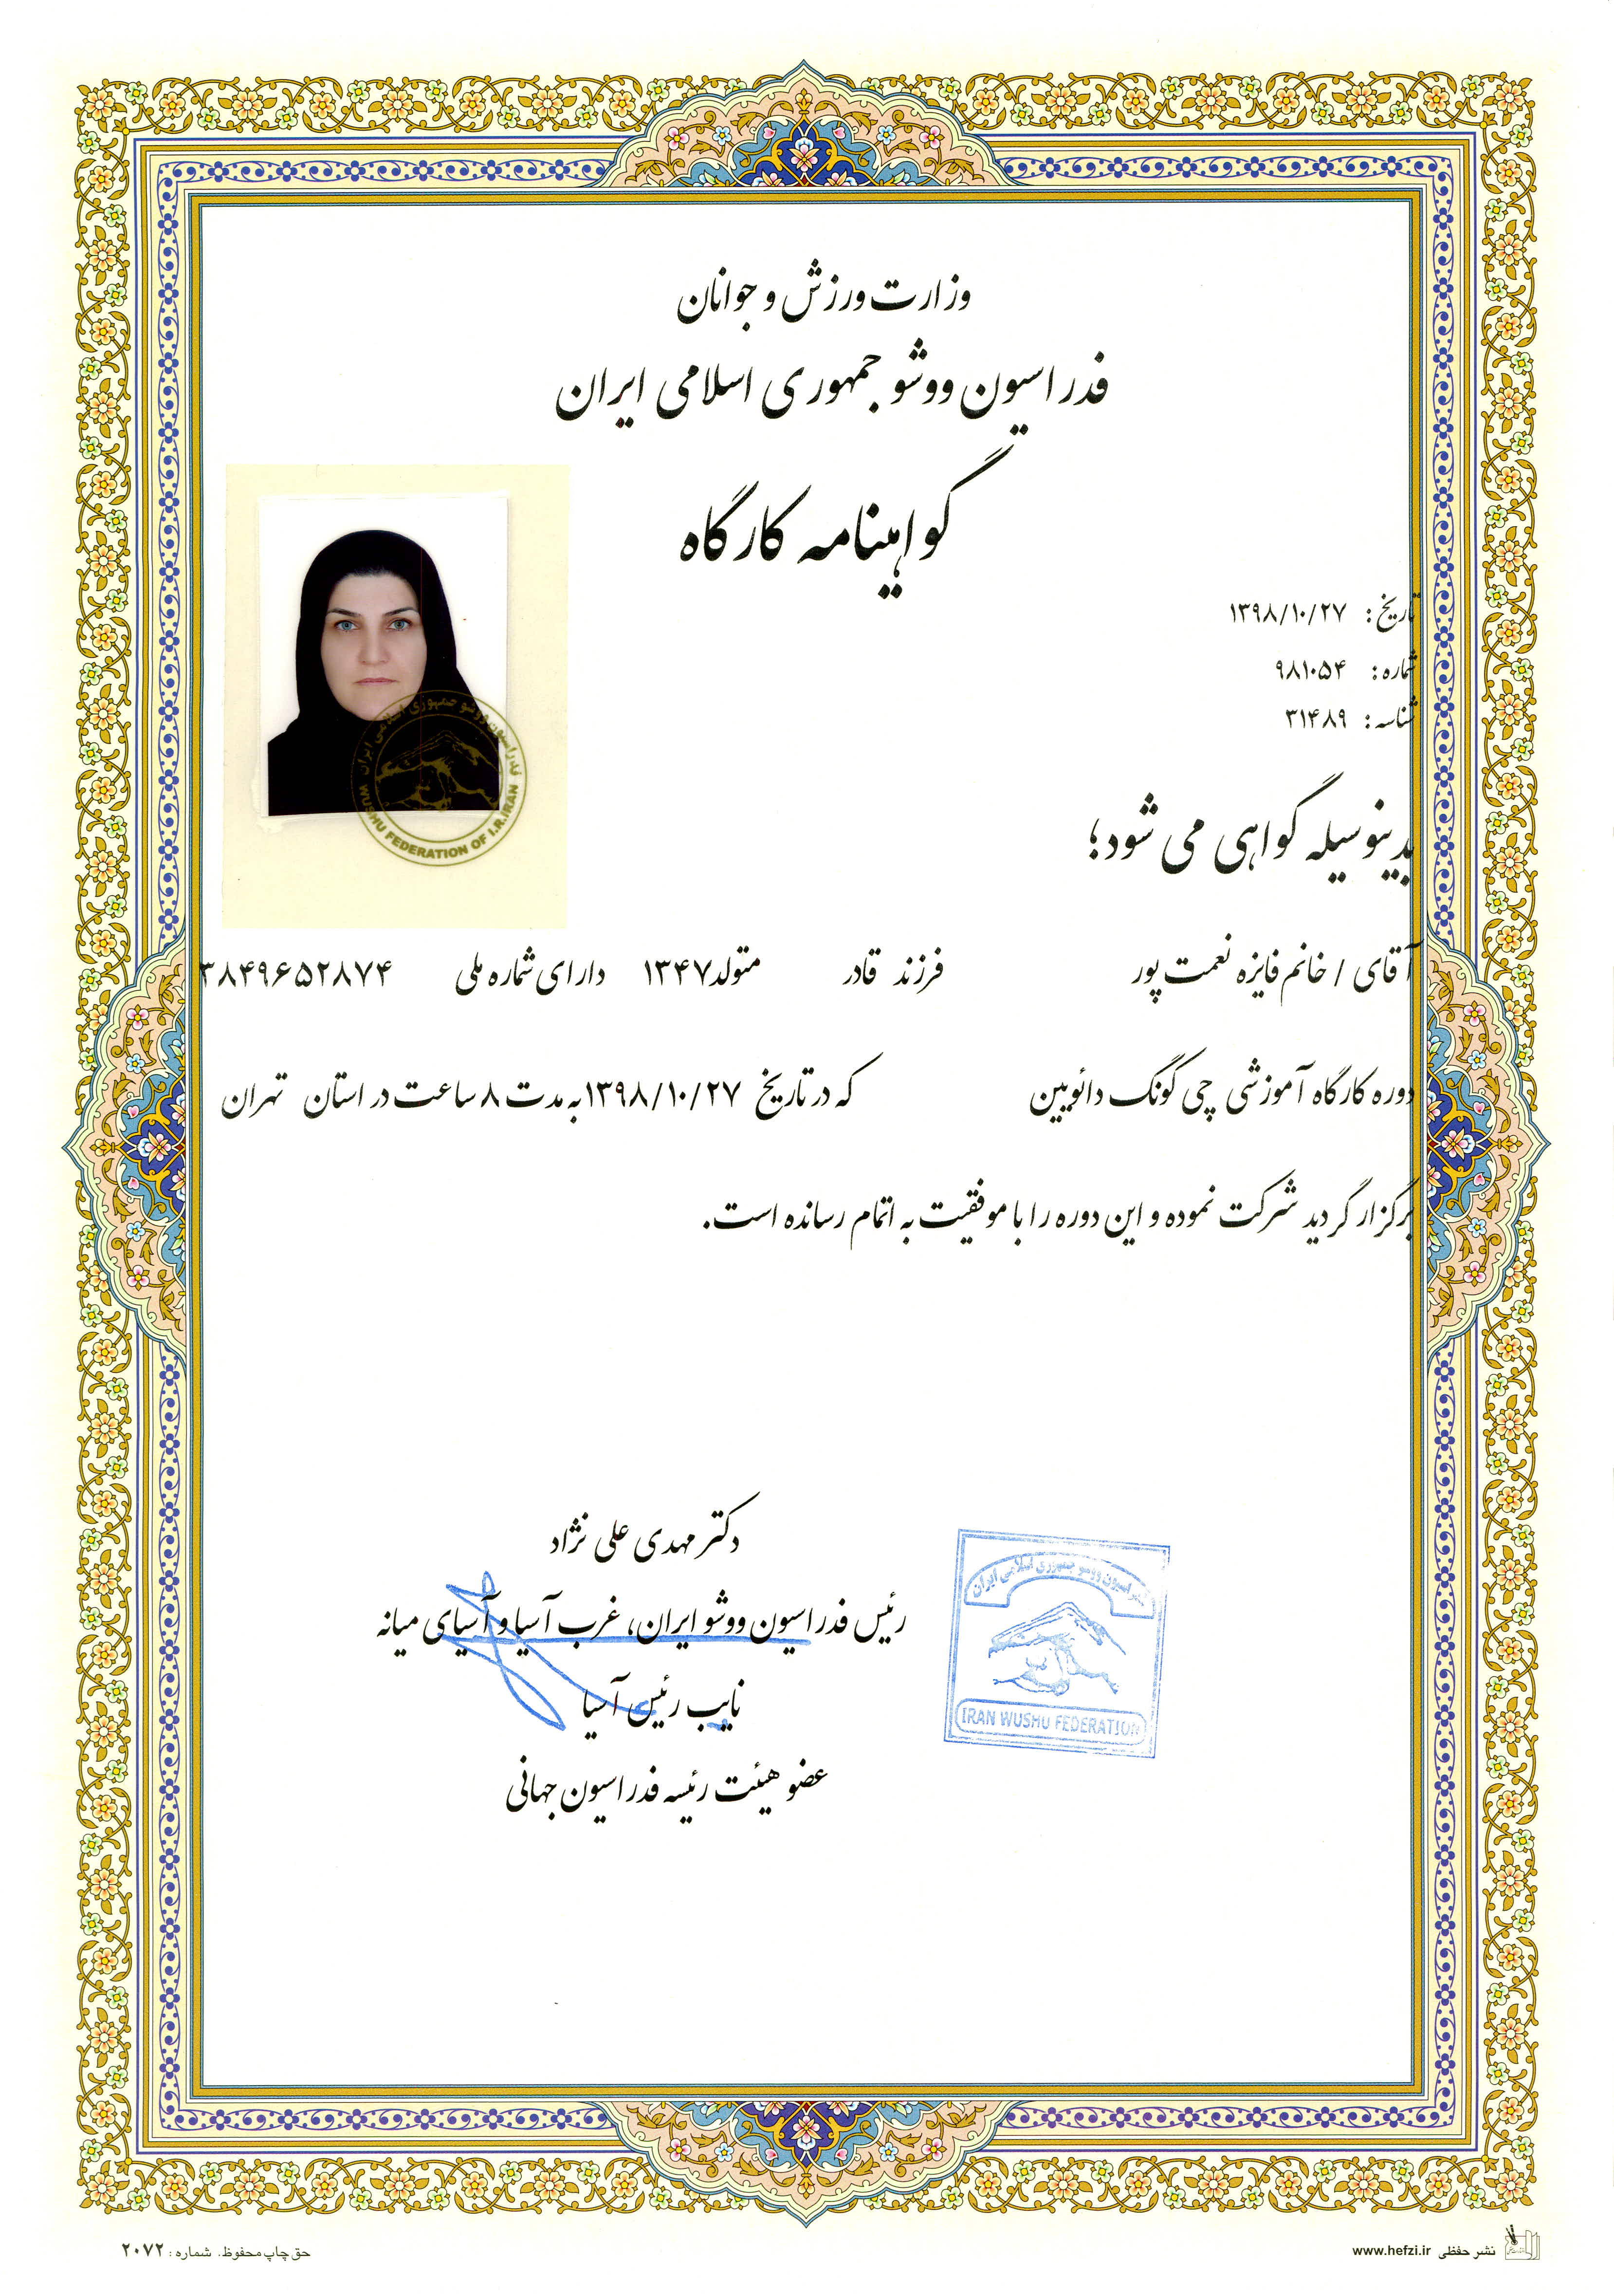 وزارت ورزش و جوانان
فدراسیون ووشو جمهوری اسلامی ایران
گواهینامه کارگاه
تاریخ: ۱۳۹۸/۱۰/۲۷
شماره: ۹۸۱۰۵۴
شناسه: ۳۱۴۸۹
فدراسیون ووشو جمهوری اسلامی ایران
WUSHU FEDERATION OF I.R.IRAN
بدینوسیله گواهی می شود؛
آقای / خانم فایزه نعمت پور فرزند قادر متولد ۱۳۴۷ دارای شماره ملی ۳۸۴۹۶۵۲۸۷۴
دوره کارگاه آموزشی چی گونگ دائویین که در تاریخ ۱۳۹۸/۱۰/۲۷ به مدت ۸ ساعت در استان تهران
برگزار گردید شرکت نموده و این دوره را با موفقیت به اتمام رسانده است.
دکتر مهدی علی نژاد
رئیس فدراسیون ووشو ایران، غرب آسیا و آسیای میانه
نایب رئیس آسیا
عضو هیئت رئیسه فدراسیون جهانی
فدراسیون ووشو جمهوری اسلامی ایران
IRAN WUSHU FEDERATION
نشر حفظی www.hefzi.ir
حق چاپ محفوظ. شماره: ۲۰۷۲